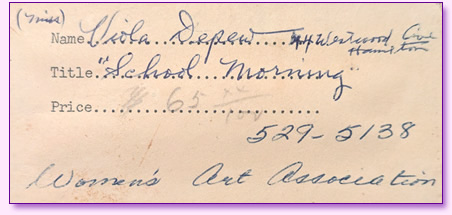 (Miss)
Name Viola Depew 44 Westwood
Hamilton
Title "School Morning"
Price $ 65 xx/100
529-5138
Women's Art Association